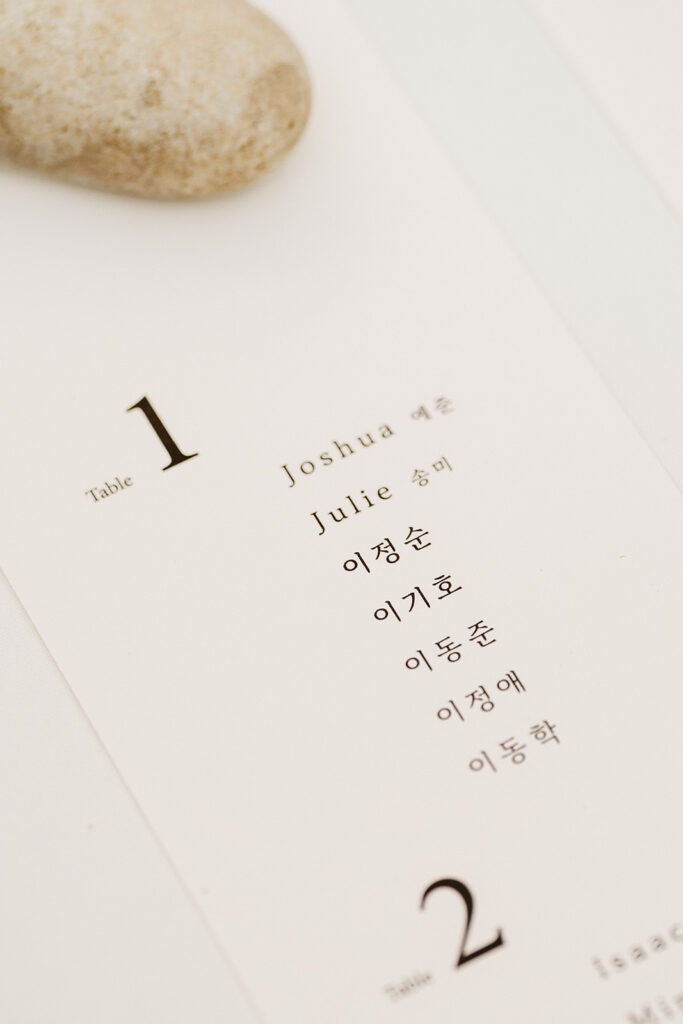 Table 1
Joshua 예준
Julie 송미
이정순
이기호
이동준
이정애
이동학
Table 2
Isaac